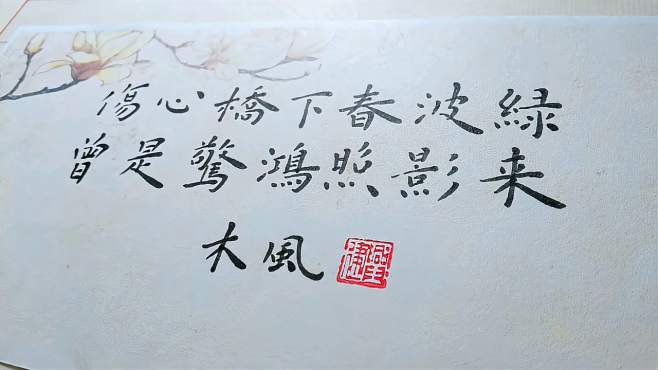 傷心橋下春波綠
曾是驚鴻照影来
木風